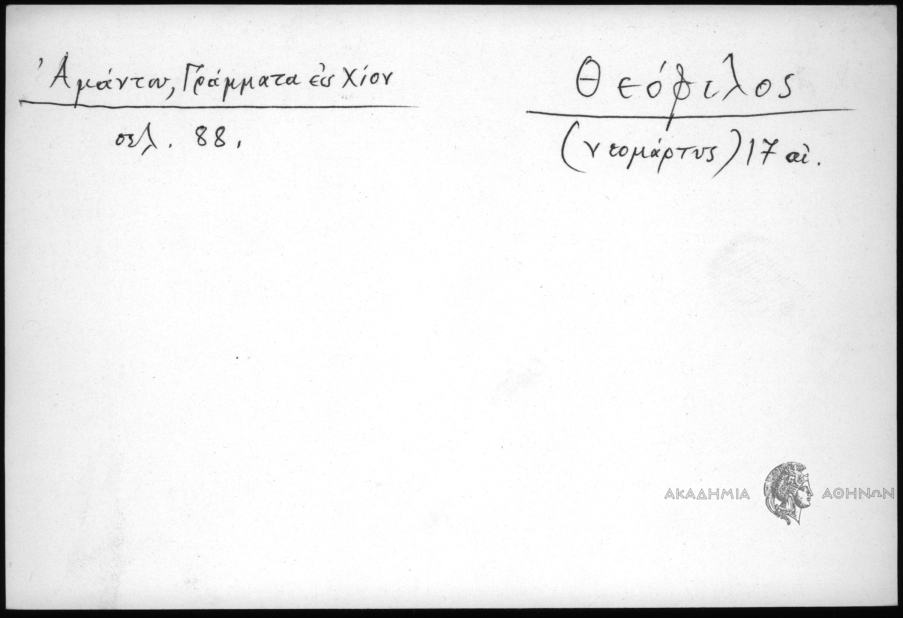 Ἀμάντου, Γράμματα εἰς Χίον
σελ. 88.
Θεόφιλος
(νεομάρτυς) 17 αἰ.
ΑΚΑΔΗΜΙΑ ΑΘΗΝΩΝ